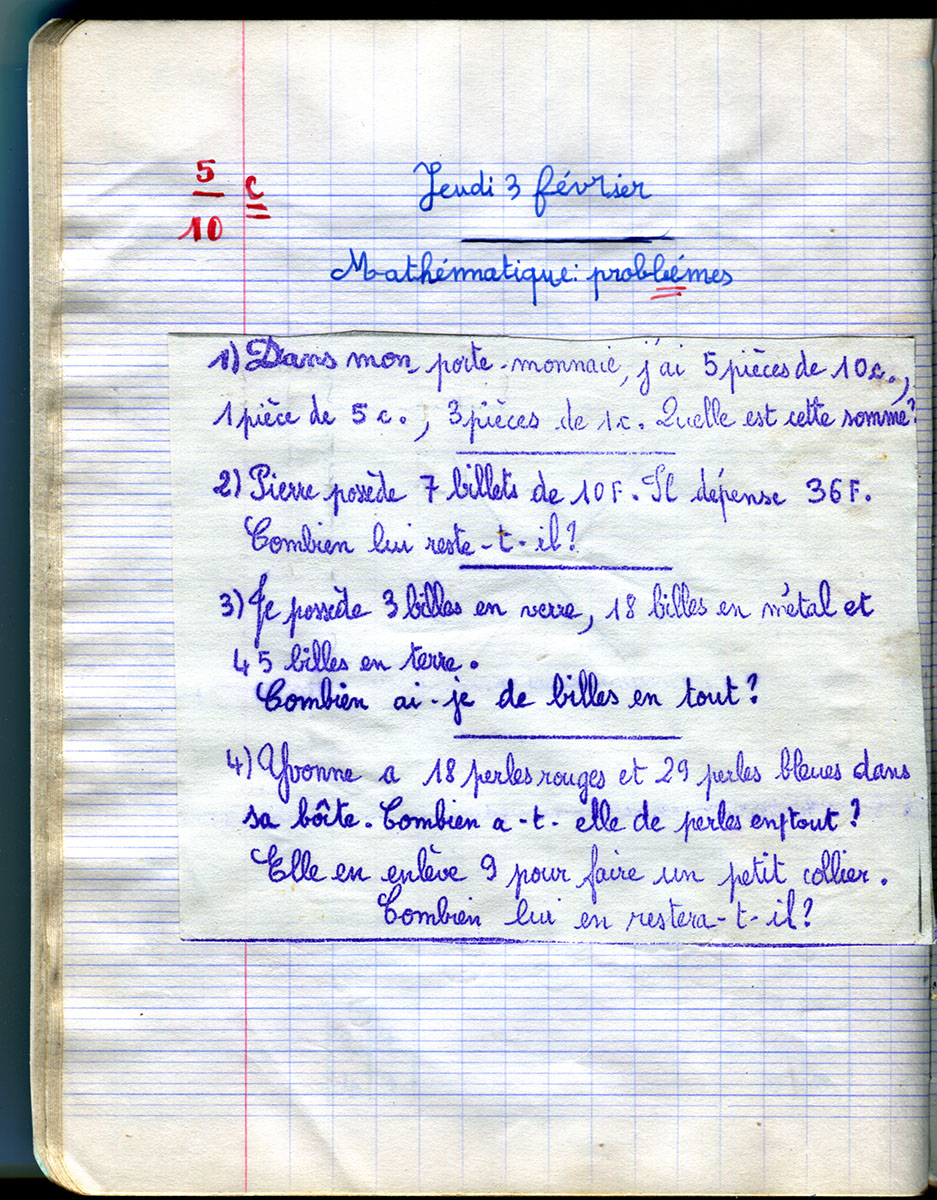 5
10
C
Jeudi 3 février
Mathématique: problémes
1) Dans mon porte-monnaie, j'ai 5 pièces de 10c.,
1 pièce de 5 c., 3 pièces de 1c. Quelle est cette somme?
2) Pierre possède 7 billets de 10F. Il dépense 36F.
Combien lui reste-t-il?
3) Je possède 3 billes en verre, 18 billes en métal et
45 billes en terre.
Combien ai-je de billes en tout?
4) Yvonne a 18 perles rouges et 29 perles bleues dans
sa bôite. Combien a-t-elle de perles en tout?
Elle en enlève 9 pour faire un petit collier.
Combien lui en restera-t-il?